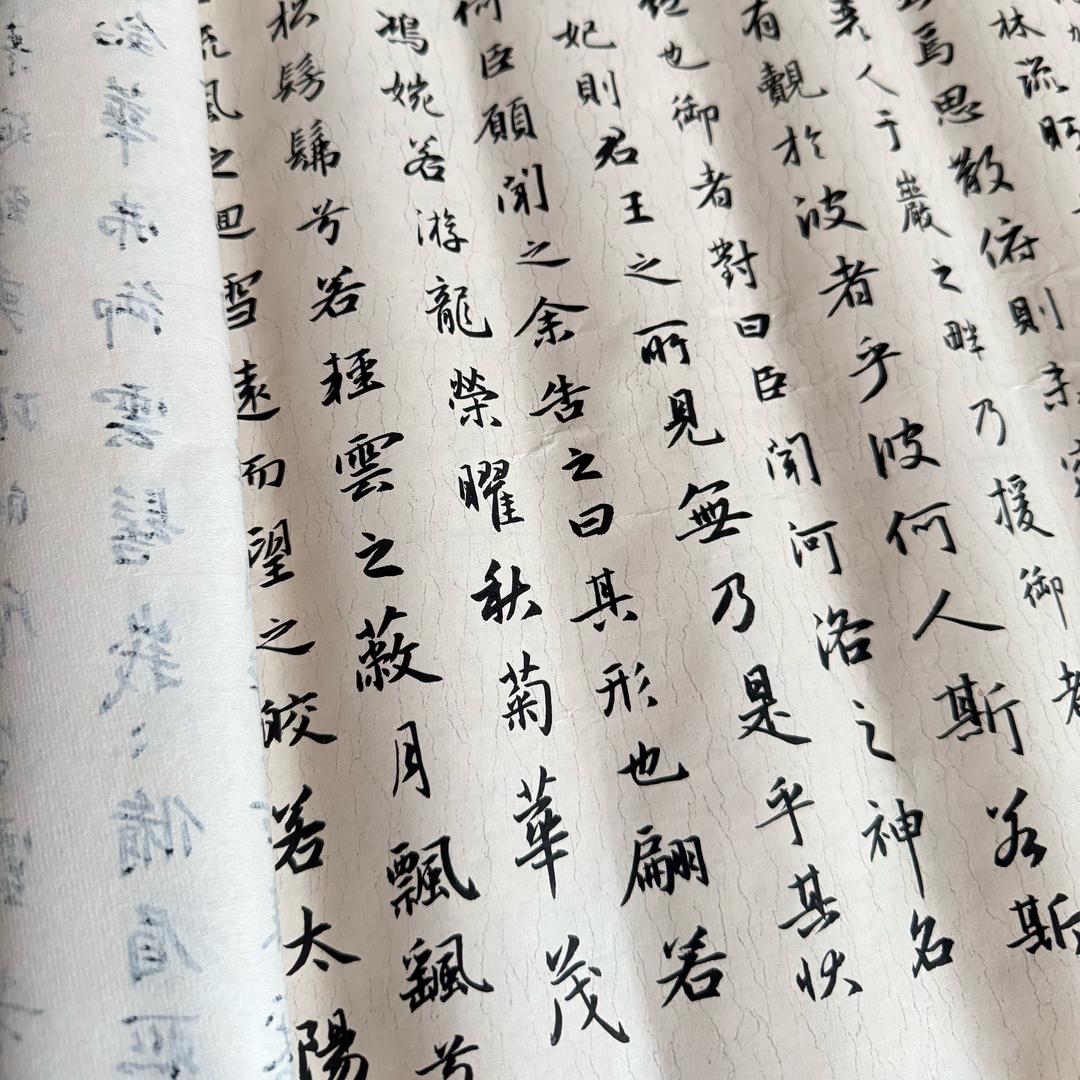 林流眄
焉思散俯則未察
麗人于巖之畔乃援御者
有覿於彼者乎彼何人斯若斯
也御者對曰臣聞河洛之神名
妃則君王之所見無乃是乎其狀
何臣願聞之余告之曰其形也翩若
鴻婉若游龍榮曜秋菊華茂
松髣髴兮若輕雲之蔽月飄飖兮
流風之迴雪遠而望之皎若太陽
鉛華弗御雲髻峩〻脩眉聯